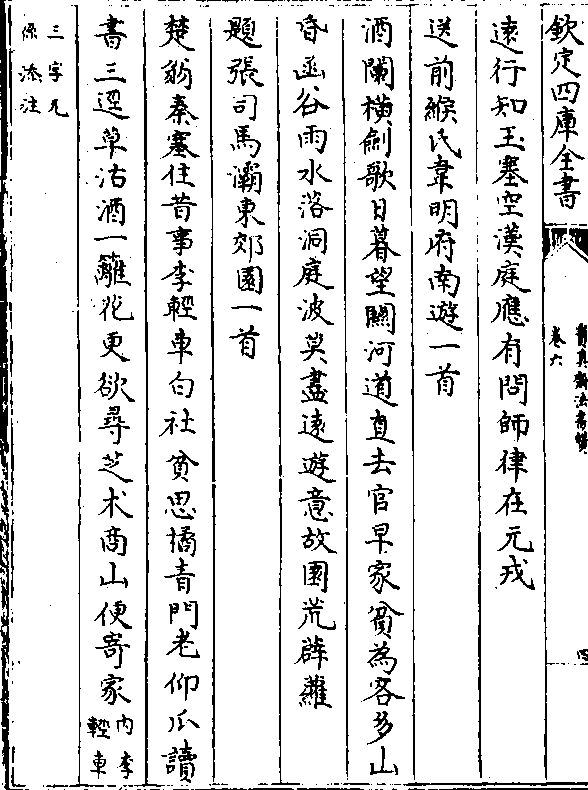 欽定四庫全書
卷六
遠行知玉塞空漢庭應有問師律在元戎
送前緱氏韋明府南遊一首
酒闌横劍歌日暮望關河道直去官早家貧為客多山
昏函谷雨水落洞庭波莫盡遠遊意故園荒薜蘿
題張司馬灞東郊園一首
楚翁秦塞住昔事李輕車白社貧思橘青門老仰瓜讀
書三逕草沽酒一籬花更欲尋芝术商山便寄家内李輕車
三字元係添注